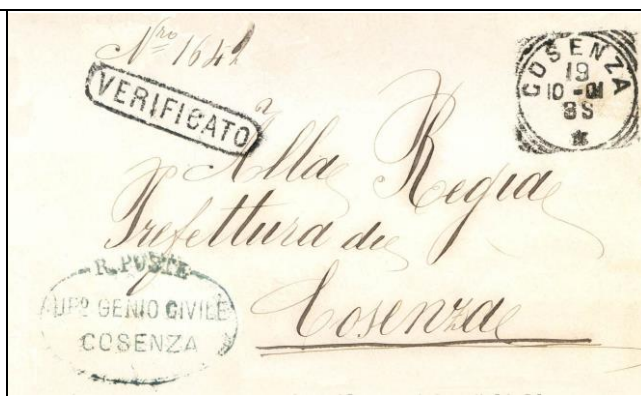 Nro 1642
VERIFICATO
COSENZA
19
10-01
85
Alla Regia
Prefettura di
Cosenza
R. POSTE
GENIO CIVILE
COSENZA